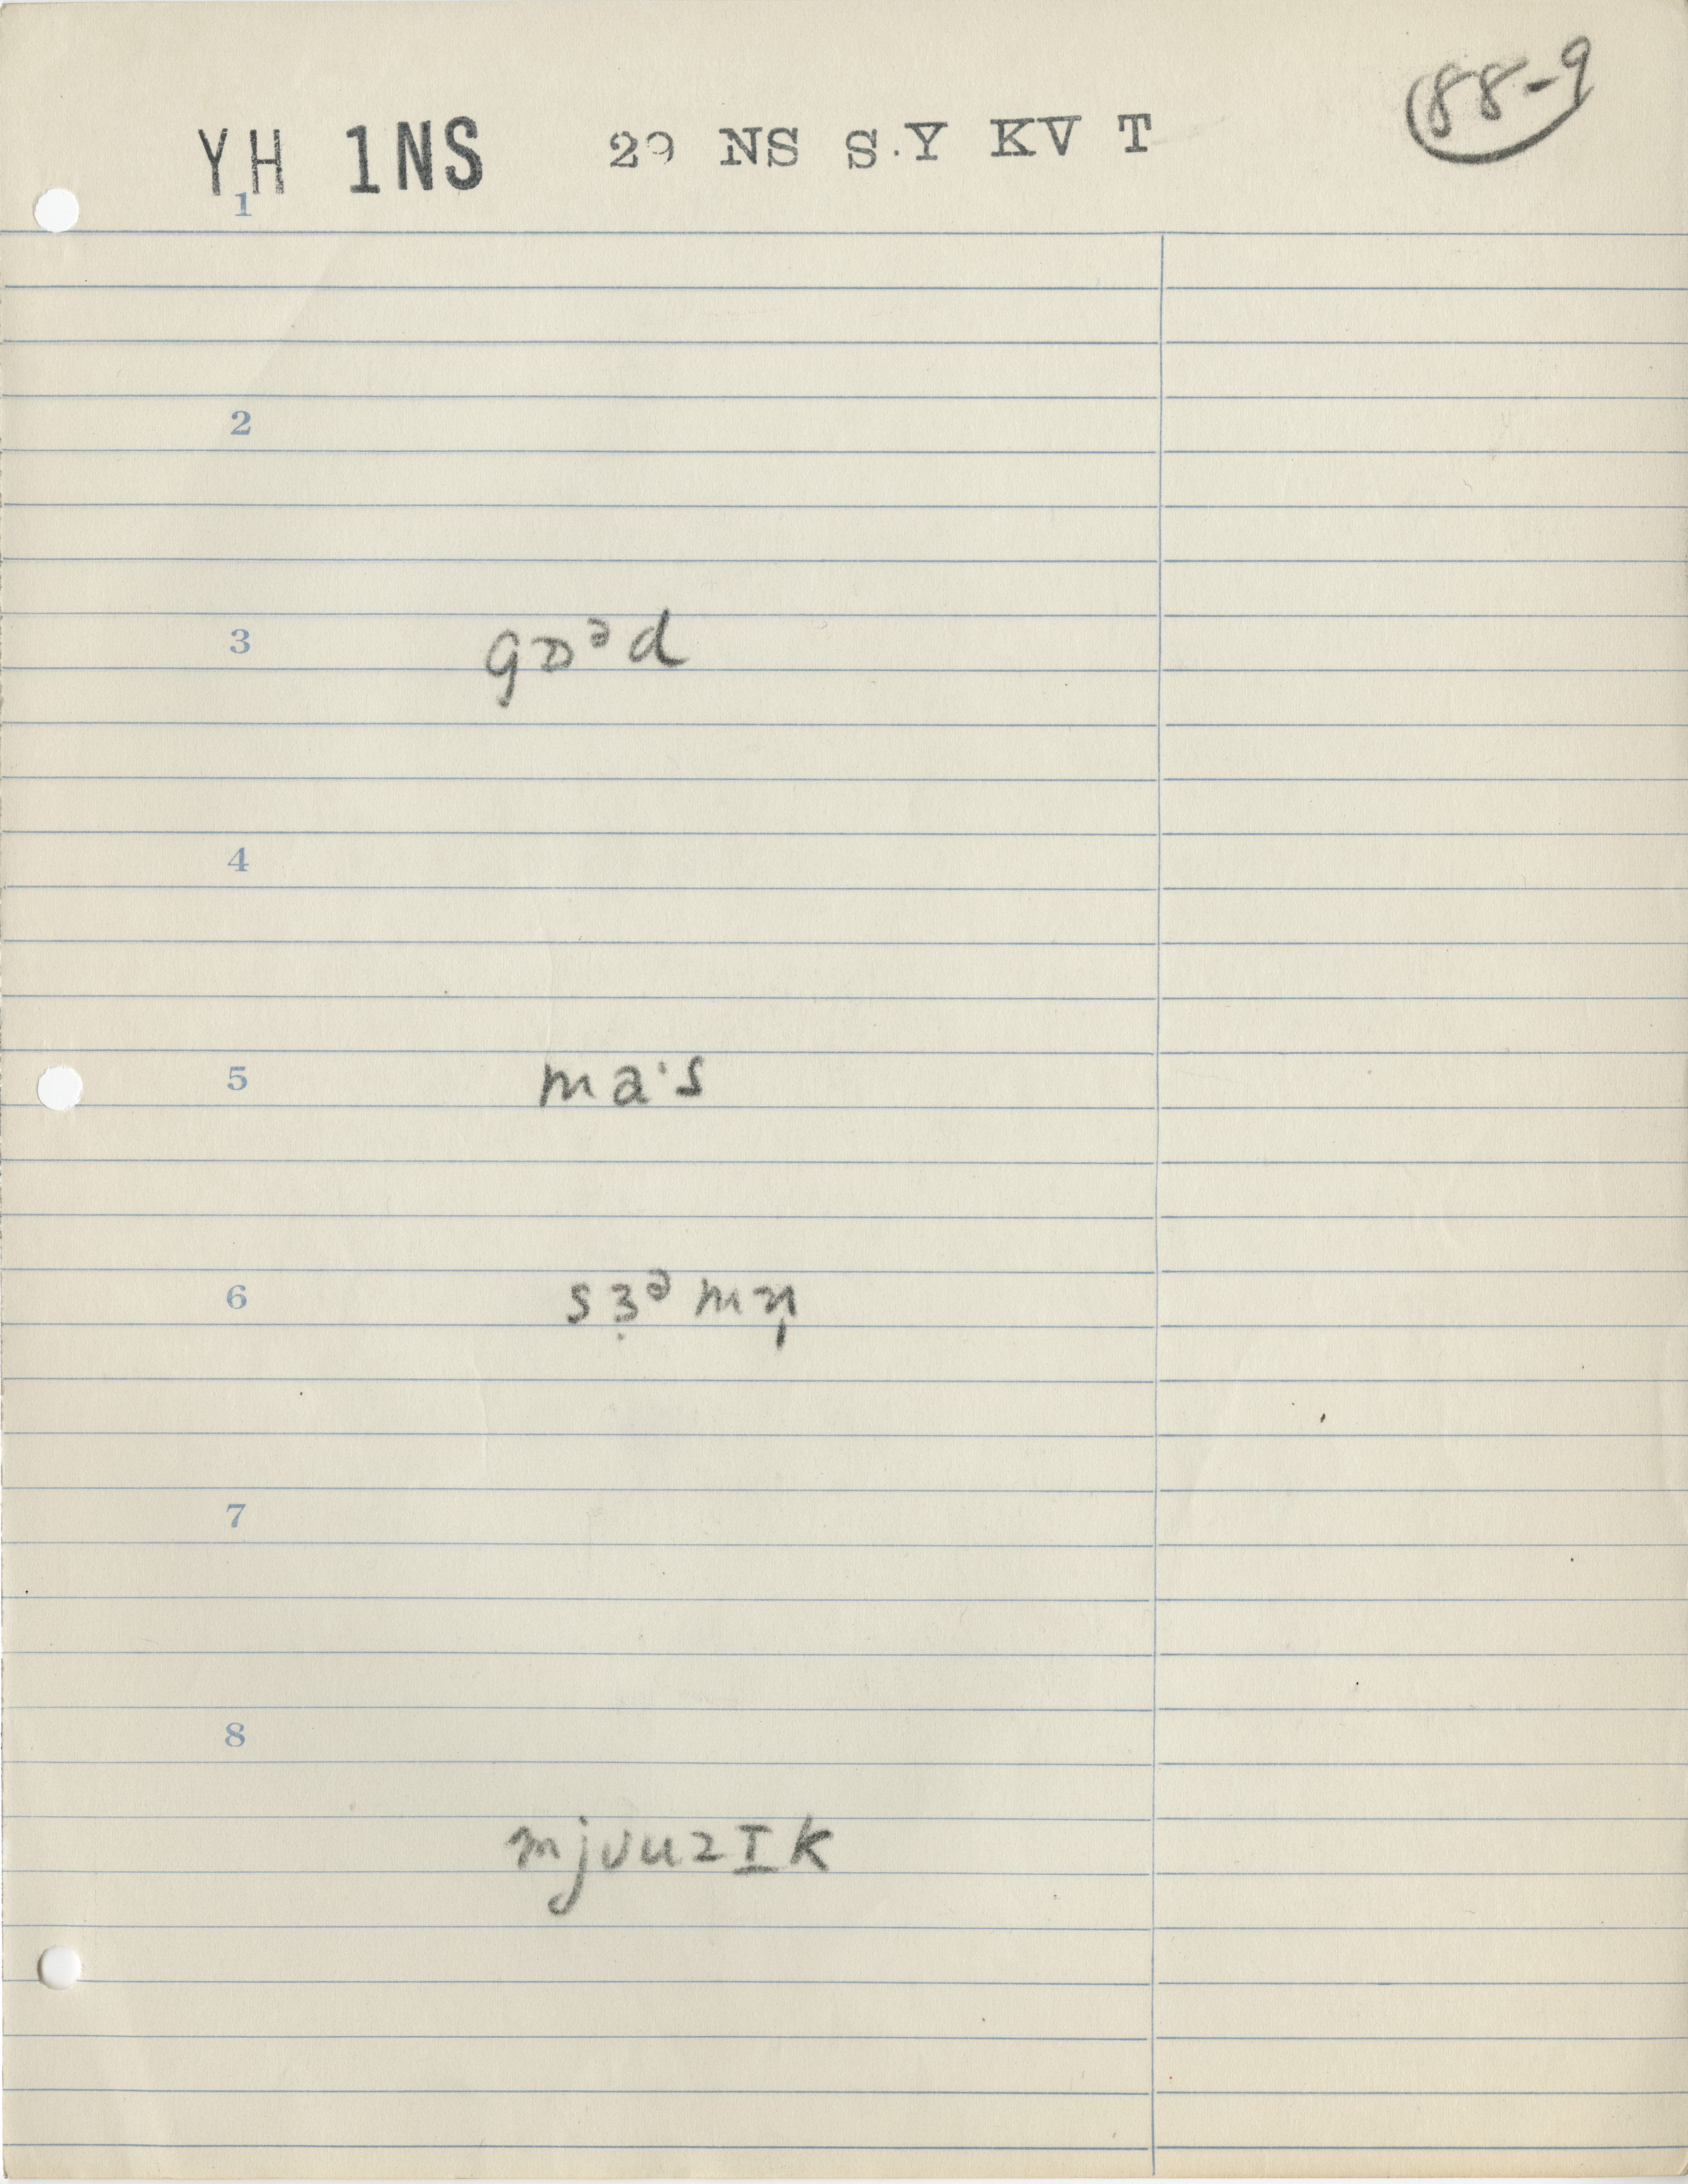 88-9
YH 1NS 29 NS S.Y KV T
1
2
3 gɒᵊd
4
5 ma·s
6 sɜ̣ᵊmn̩
7
8
mjᴜuzɪk